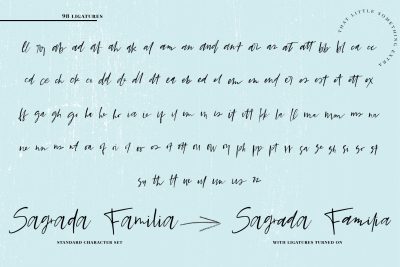 98 LIGATURES
THAT LITTLE SOMETHING EXTRA
ab ad af ah ak al am an and ant ar as at att bb bl ca ce
cd ce ch ck co dd de dl dt ea eb ed el em en end er es est et ett ex
ff ga gh go ha he hr ia ie if il im in is it itt kk la ll ma mm ms na
ne nn ns nt oa of oo os ot ott ph pp pt sa se sh si so st
su th tt ue ul um us
Sagrada Familia → Sagrada Familia
STANDARD CHARACTER SET
WITH LIGATURES TURNED ON